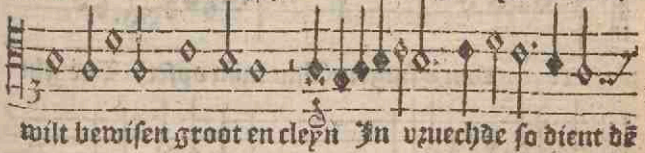 wilt bewisen groot en cleyn In vruechde so dient dē